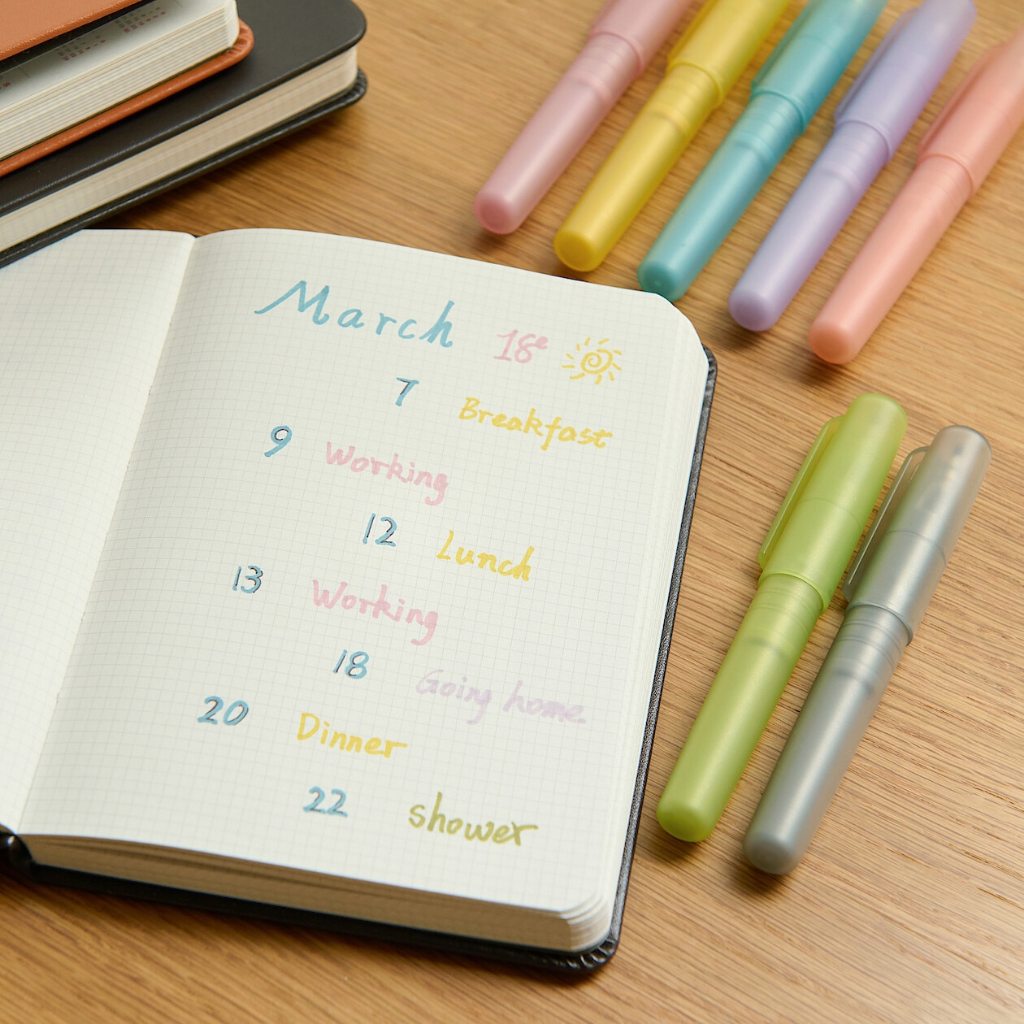 March 18e
7 Breakfast
9 Working
12 Lunch
13 Working
18 Going home.
20 Dinner
22 shower